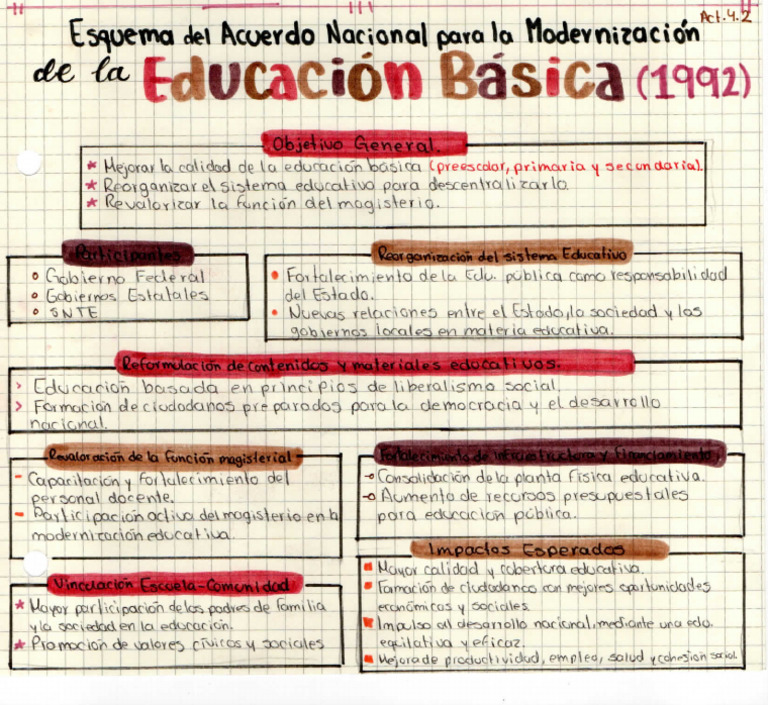 Act. 4.2
Esquema del Acuerdo Nacional para la Modernización
de la Educación Básica (1992)
Objetivo General.
* Mejorar la calidad de la educación básica (preescolar, primaria y secundaria).
* Reorganizar el sistema educativo para descentralizarlo.
* Revalorizar la función del magisterio.
Participantes
Gobierno Federal
Gobiernos Estatales
SNTE
Reorganización del sistema Educativo
• Fortalecimiento de la Edu. pública como responsabilidad
del Estado.
• Nuevas relaciones entre el Estado, la sociedad y los
gobiernos locales en materia educativa.
Reformulación de contenidos y materiales educativos.
> Educación basada en principios de liberalismo social.
> Formación de ciudadanos preparados para la democracia y el desarrollo
nacional.
Revaloración de la función magisterial
- Capacitación y fortalecimiento del
personal docente.
- Participación activa del magisterio en la
modernización educativa.
Fortalecimiento de infraestructura y financiamiento
-o Consolidación de la planta física educativa.
-o Aumento de recursos presupuestales
para educación pública.
Vinculación Escuela-Comunidad
* Mayor participación de los padres de familia
y la sociedad en la educación.
* Promoción de valores cívicos y sociales
Impactos Esperados
Mayor calidad y cobertura educativa.
Formación de ciudadanos con mejores oportunidades
económicas y sociales.
Impulso al desarrollo nacional, mediante una edu.
equitativa y eficaz.
Mejora de productividad, empleo, salud y cohesion social.